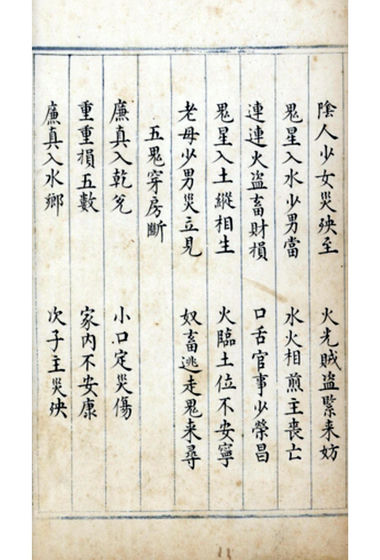 陰人少女災殃至　火光賊盜緊来妨
鬼星入水少男當　水火相煎主喪亡
連連火盜畜財損　口舌官事少榮昌
鬼星入土縱相生　火臨土位不安寧
老母少男災立見　奴畜逃走鬼来尋
五鬼穿房斷
廉真入乾兌　小口定災傷
重重損五數　家内不安康
廉真入水鄉　次子主災殃